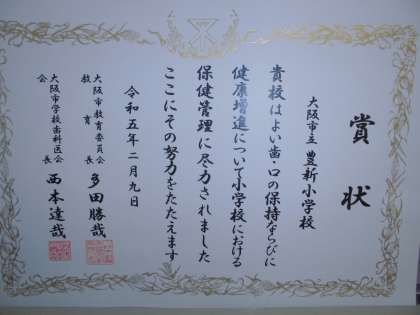 賞状
大阪市立 豊新小学校
貴校はよい歯・口の保持ならびに
健康増進について小学校における
保健管理に尽力されました
ここにその努力をたたえます
令和五年二月九日
大阪市教育委員会
教育長 多田勝哉
大阪市学校歯科医会
会長 西本達哉